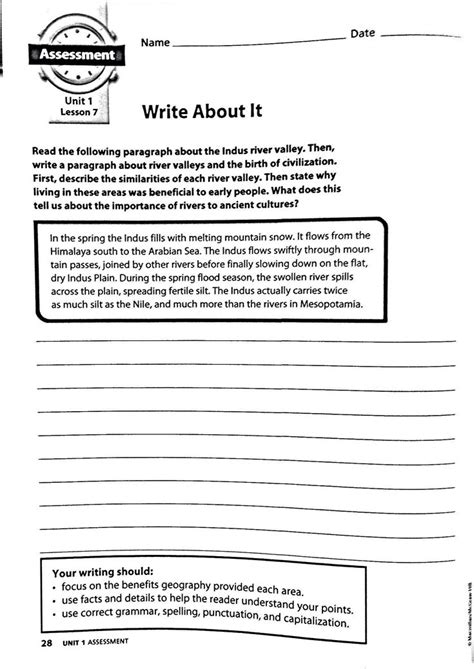 Assessment
Unit 1
Lesson 7
Name
Date
Write About It
Read the following paragraph about the Indus river valley. Then,
write a paragraph about river valleys and the birth of civilization.
First, describe the similarities of each river valley. Then state why
living in these areas was beneficial to early people. What does this
tell us about the importance of rivers to ancient cultures?
In the spring the Indus fills with melting mountain snow. It flows from the
Himalaya south to the Arabian Sea. The Indus flows swiftly through moun-
tain passes, joined by other rivers before finally slowing down on the flat,
dry Indus Plain. During the spring flood season, the swollen river spills
across the plain, spreading fertile silt. The Indus actually carries twice
as much silt as the Nile, and much more than the rivers in Mesopotamia.
Your writing should:
• focus on the benefits geography provided each area.
• use facts and details to help the reader understand your points.
• use correct grammar, spelling, punctuation, and capitalization.
28 UNIT 1 ASSESSMENT
© Macmillan/McGraw-Hill